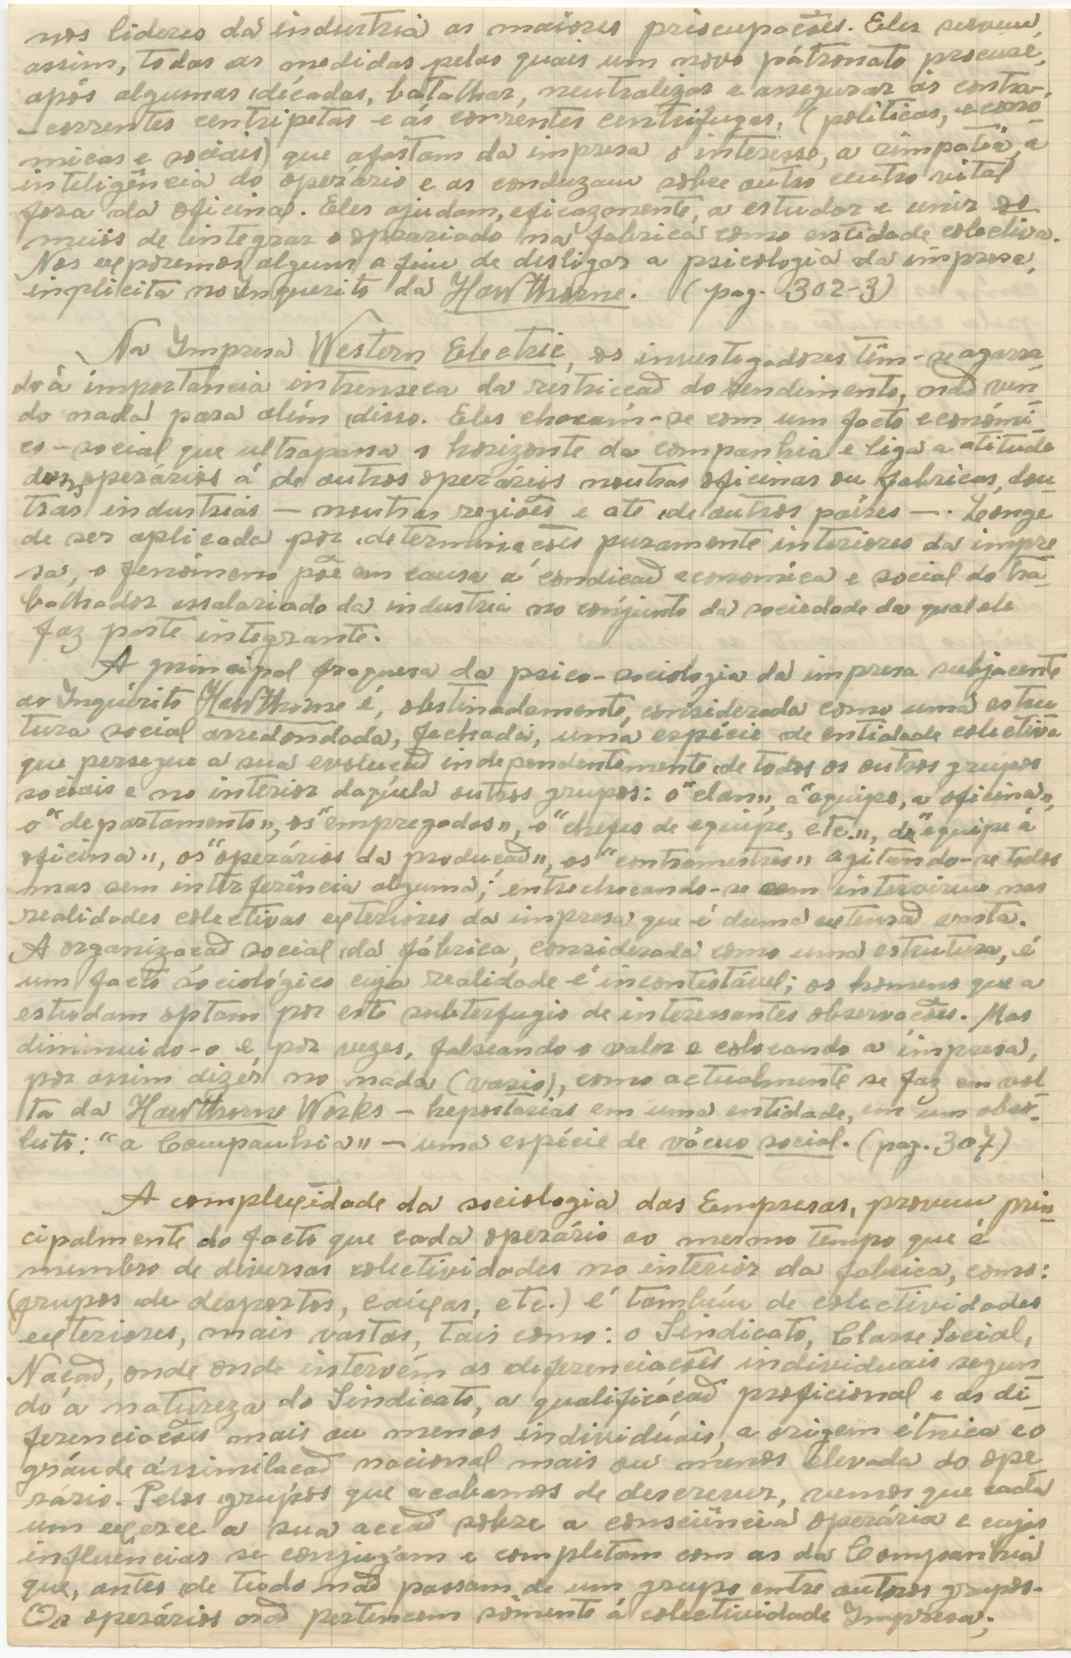 nos lideres da industria as maiores priocupações. Eles servem,
assim, todas as medidas pelas quais um novo pátronato procure,
após algumas décadas, batalhar, neutralizar e assegurar ás contra-
-correntes centripetas e ás correntes centrifugas, (politicas, econo-
micas e sociais) que afastam da impresa o interesse, a simpatia, a
inteligência do operário e as conduzam sobre outro centro vital
fora da oficina. Eles ajudam, eficazmente, a estudar e unir os
meios de integrar o operariado na fabrica como entidade colectiva.
Nos exporemos alguns a fim de desligar a psicologia da impresa,
implicita no inquerito da Hawthorne. (pag. 302-3)
Na Impresa Western Electric, os investegadores têm-se agarra
do á importancia intrenseca da restricção do rendimento, não ven
do nada para além disso. Eles chocam-se com um facto económi-
co-social que ultrapassa o horizonte da companhia e liga a atitude
dos operários á de outros operários noutras oficinas ou fabricas, dou
tras industrias — noutras regiões e até de outros paises —. Longe
de ser aplicada por determinações puramente interiores da impre
sa, o fenómeno põe em causa a condição económica e social do tra-
balhador assalariado da industria no conjunto da sociedade da qual ele
faz parte integrante.
A principal fraquesa da psico-sociologia da impresa subjacente
ao Inquérito Hawthorne é, obstinadamente, considerada como uma estru
tura social arredondada, fechada, uma espécie de entidade colectiva
que persegue a sua evolução independentemente de todos os outros grupos
sociais e no interior daquela outros grupos: o "clan", a "equipe, a oficina",
o "departamento", os "empregados", o "chefes de equipe, etc.", da "equipe á
oficina", os "operários da produção", os "contramestres" agitando-se todos
mas sem interferência alguma; entrechocando-se sem intervirem nas
realidades colectivas exteriores da impresa que é duma extensão vasta.
A organização social da fábrica, considerada como uma estrutura, é
um facto sociológico cuja realidade é incontestável; os homens que a
estudam optam por este subterfugio de interessantes observações. Mas
diminuido-o e, por vezes, falseando o valor e colocando a impresa,
por assim dizer no nada (vasio), como actualmente se faz em vol
ta da Hawthorne Works — hepostasias em uma entidade, em um abso-
luto: "a Companhia" — uma espécie de vácuo social. (pag. 307)
A complexidade da sociologia das Empresas, provem prin-
cipalmente do facto que cada operário ao mesmo tempo que é
membro de diversas colectividades no interior da fabrica, como:
(grupos de desportos, caixas, etc.) é também de colectividades
exteriores, mais vastas, tais como: o Sindicato, Classe Social,
Nação, onde onde intervêm as diferenciações individuais segun
do a natureza do Sindicato, a qualificação proficional e as di-
ferenciações mais ou menos individuais, a origem étnica e o
gráu de assimilação nacional mais ou menos elevada do ope
rário. Pelos grupos que acabamos de descrever, vemos que cada
um exerce a sua acção sobre a consciência operária e cujas
influências se conjugam e completam com as da Companhia
que, antes de tudo não passam de um grupo entre outros grupos.
Os operários não pertencem sómente á colectividade Impresa;